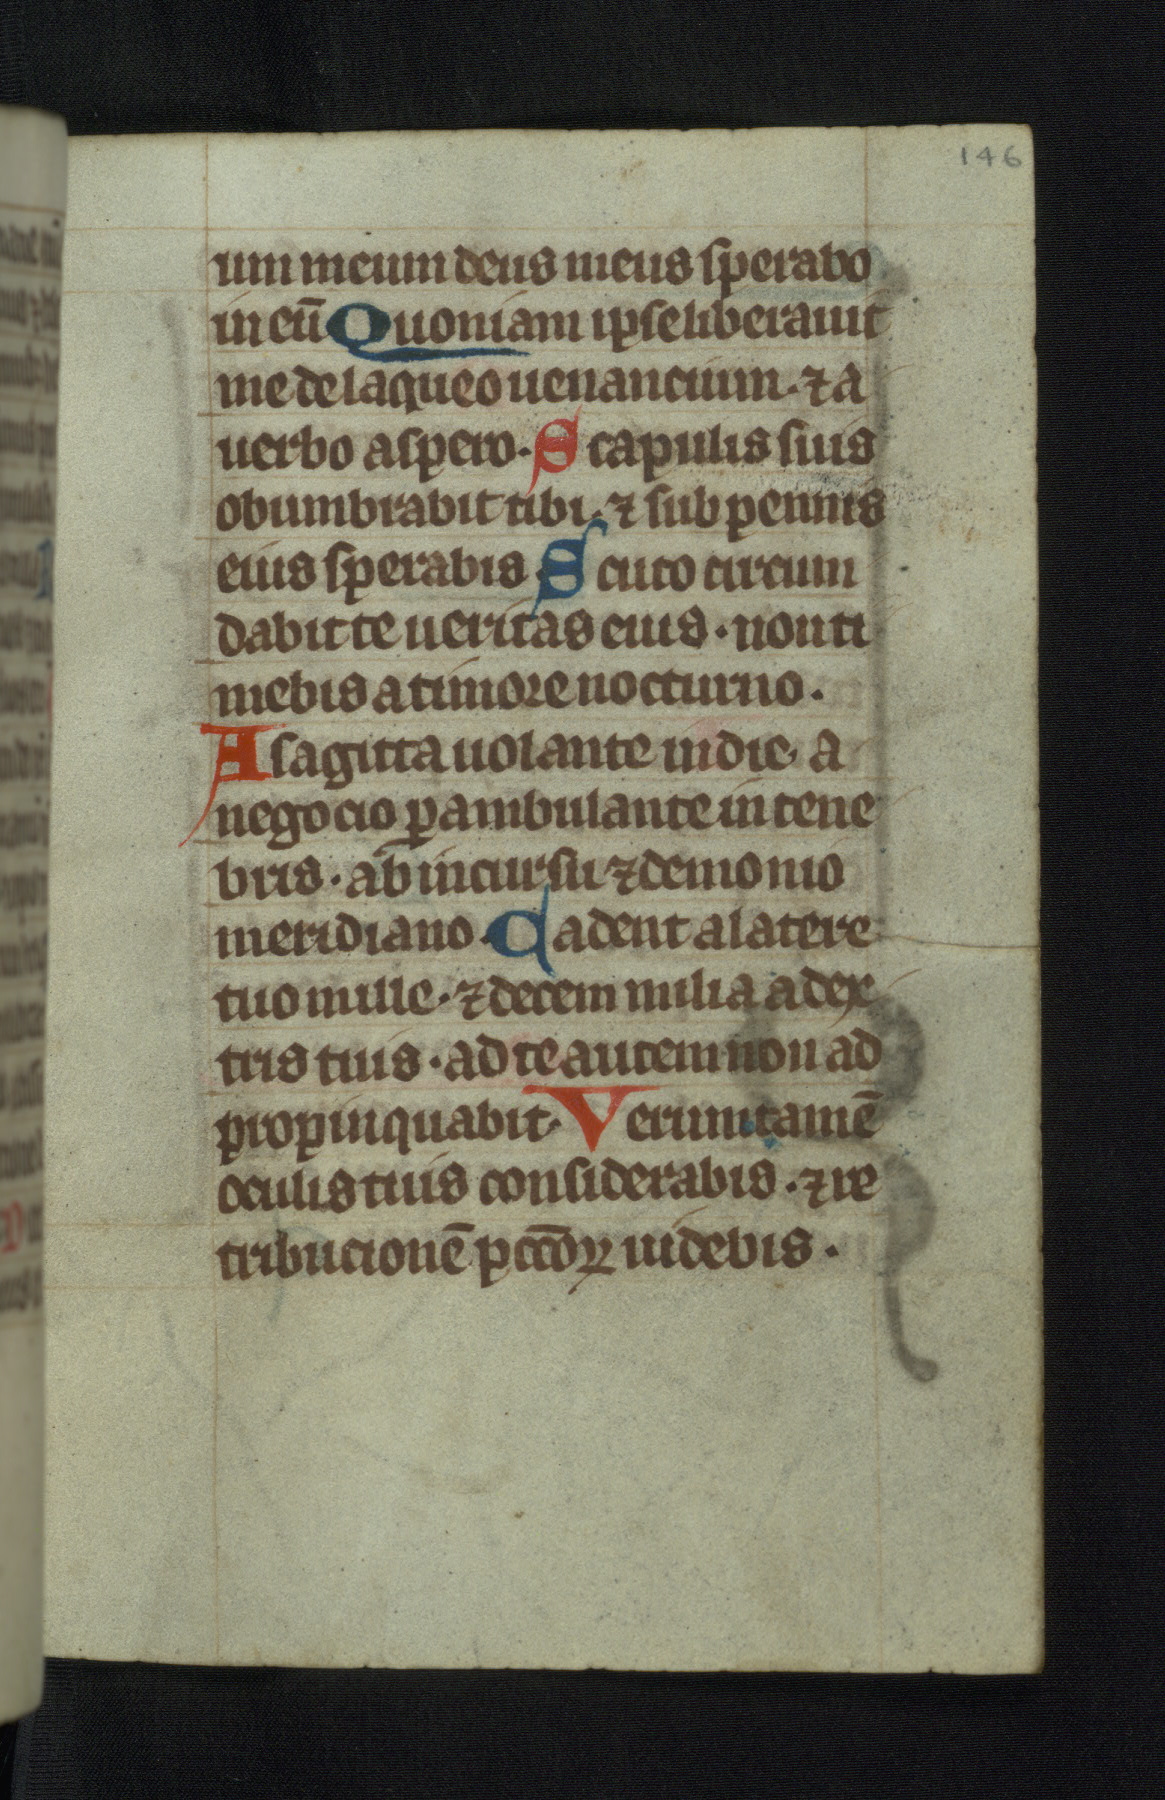 146
um meum deus meus sperabo
in eū Quoniam ipse liberauit
me de laqueo uenancium · ⁊ a
uerbo aspero · Scapulis suis
obumbrabit tibi · ⁊ sub pennis
eius sperabis Scuto circum
dabit te ueritas eius · non ti
mebis a timore nocturno ·
A sagitta uolante in die · a
negocio ꝑambulante in tene
bris · ab incursu ⁊ demonio
meridiano · Cadent a latere
tuo mille · ⁊ decem milia a dex
tris tuis · ad te autem non ad
propinquabit · Verumtamē
oculis tuis considerabis · ⁊ re
tribucionē pctōꝝ uidebis ·